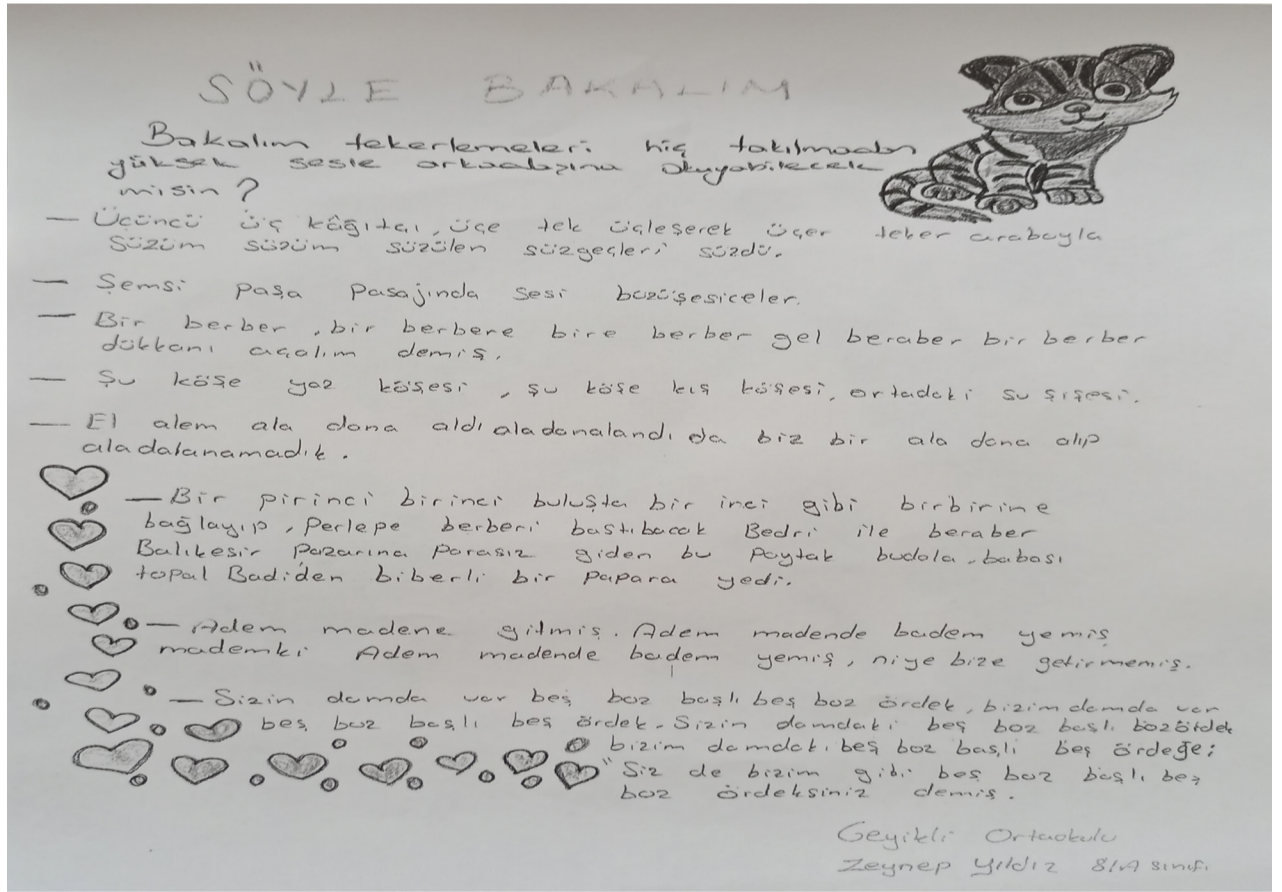 SÖYLE BAKALIM
Bakalım tekerlemeleri hiç takılmadan
yüksek sesle arkadaşına okuyabilecek
misin?
— Üçüncü üç kâğıtçı, üçe tek üçleşerek üçer teker arabayla
süzüm süzüm süzülen süzgeçleri süzdü.
— Şemsi paşa pasajında sesi büzüşesiceler.
— Bir berber, bir berbere bire berber gel beraber bir berber
dükkanı açalım demiş.
— Şu köşe yaz köşesi, şu köşe kış köşesi, ortadaki su şişesi.
— El alem ala dana aldı aladanalandı da biz bir ala dana alıp
aladalanamadık.
— Bir pirinci birinci buluşta bir inci gibi birbirine
bağlayıp, Perlepe berberi bastıbacak Bedri ile beraber
Balıkesir pazarına parasız giden bu paytak budala, babası
topal Badi'den biberli bir papara yedi.
— Adem madene gitmiş. Adem madende badem yemiş
mademki Adem madende badem yemiş, niye bize getirmemiş.
— Sizin damda var beş boz başlı beş boz ördek, bizim damda var
beş boz başlı beş ördek. Sizin damdaki beş boz başlı boz ördek
bizim damdaki beş boz başlı beş ördeğe;
"Siz de bizim gibi beş boz başlı beş
boz ördeksiniz demiş.
Geyikli Ortaokulu
Zeynep Yıldız 8/A sınıfı